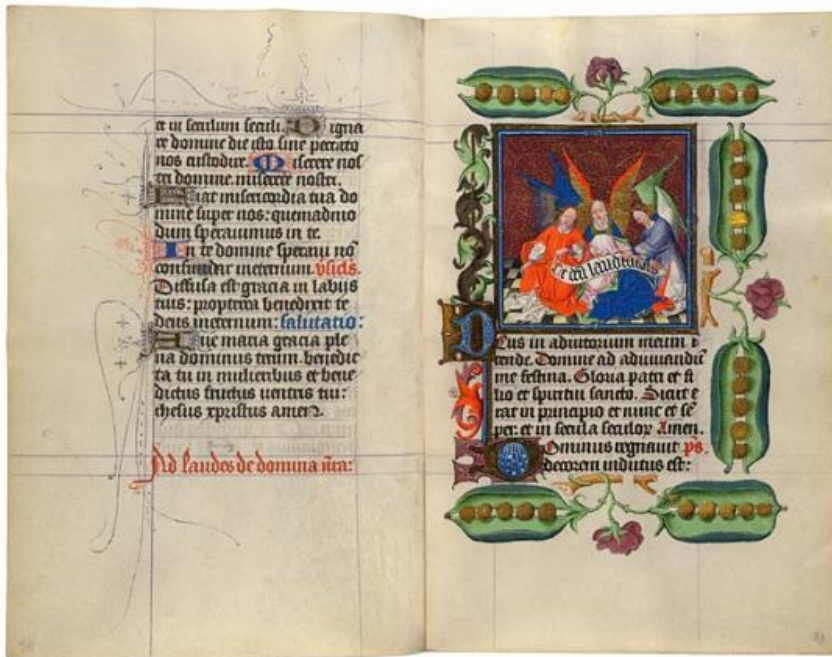 et in seculum seculi. Digna
re domine die isto sine peccato
nos custodire. Miserere nos
tri domine. miserere nostri.
Fiat misericordia tua do
mine super nos: quemadmo
dum sperauimus in te.
In te domine speraui nō
confundar ineternum. vsicls.
Diffusa est gracia in labijs
tuis: propterea benedixit te
deus ineternum: salutatio:
Aue maria gracia ple
na dominus tecum. benedic
ta tu in mulieribus et bene
dictus fructus uentris tui:
ihesus xpristus amen.
Ad laudes de domina nra:
Te deū laudamus
Deus in adiutorium meum i
tende. Domine ad adiuuandū
me festina. Gloria patri et fi
lio et spiritui sancto. Sicut e
rat in principio et nunc et sē
per: et in secula seculor Amen.
Dominus regnauit ps.
decorem indutus est: